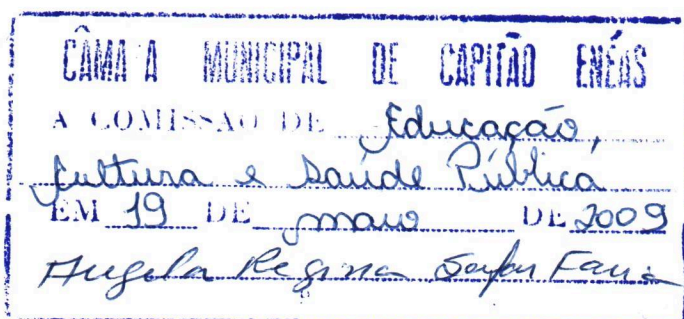 CÂMA A MUNICIPAL DE CAPITÃO ENÉAS
A COMISSAO DE Educação,
Cultura e Saúde Pública
EM 19 DE maio DE 2009
Angela Regina Faria